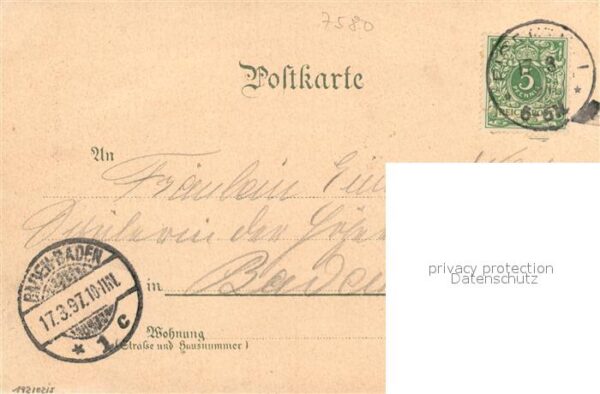 7580
Postkarte
5
PFENNIG
6-
An
Fräulein
Schülerin der
in Baden
BADEN-BADEN
17.3.97. 10-11V.
* 1 c
Wohnung
(Straße und Hausnummer)
privacy protection
Datenschutz